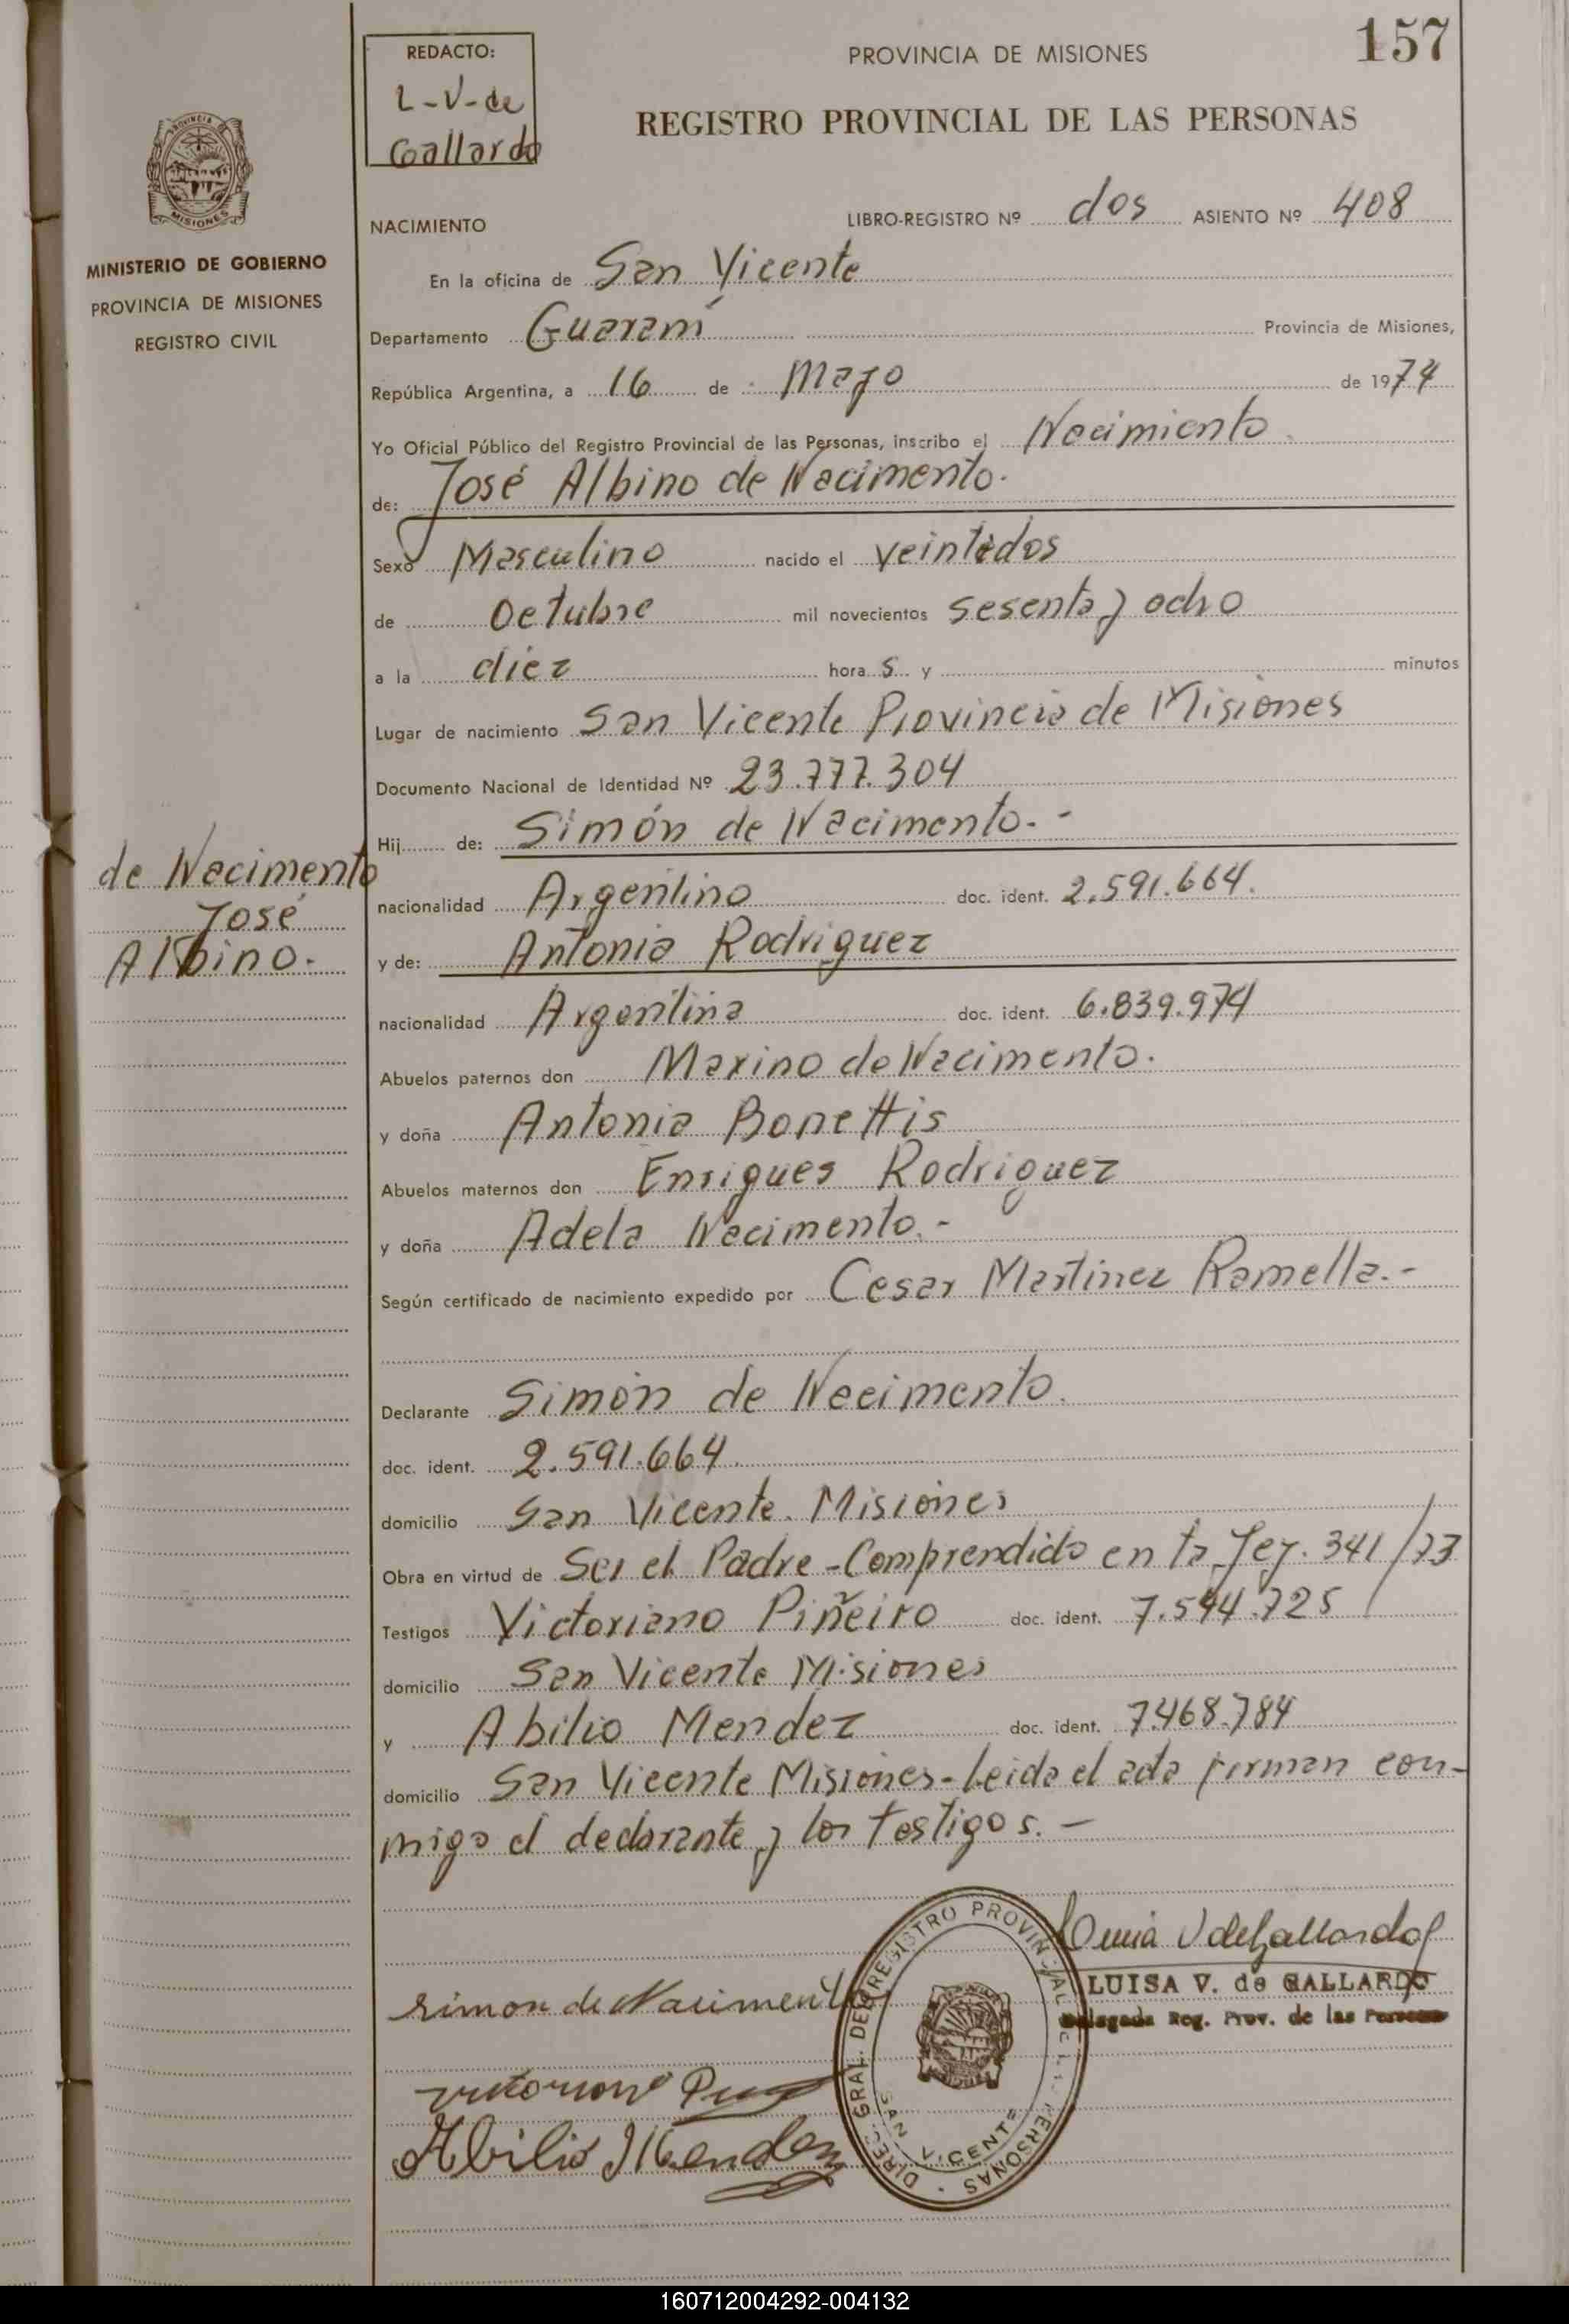 157
REDACTO:
L-V-de
Gallardo
PROVINCIA DE MISIONES
REGISTRO PROVINCIAL DE LAS PERSONAS
PROVINCIA
MISIONES
MINISTERIO DE GOBIERNO
PROVINCIA DE MISIONES
REGISTRO CIVIL
NACIMIENTO LIBRO-REGISTRO Nº dos ASIENTO Nº 408
En la oficina de San Vicente
Departamento Guaraní Provincia de Misiones,
República Argentina, a 16 de Mayo de 1974
Yo Oficial Público del Registro Provincial de las Personas, inscribo el Nacimiento
de: José Albino de Nacimento.
Sexo Masculino nacido el veintidos
de Octubre mil novecientos sesenta y ocho
a la diez hora s y minutos
Lugar de nacimiento San Vicente Provincia de Misiones
Documento Nacional de Identidad Nº 23.777.304
Hij de: Simón de Nacimento. -
de Nacimento
José
Albino.
nacionalidad Argentino doc. ident. 2.591.664.
y de: Antonia Rodriguez
nacionalidad Argentina doc. ident. 6.839.974
Abuelos paternos don Maximo de Nacimento.
y doña Antonia Bonettis
Abuelos maternos don Enrigues Rodriguez
y doña Adela Nacimento. -
Según certificado de nacimiento expedido por Cesar Martinez Ramella. -
Declarante Simón de Nacimento.
doc. ident. 2.591.664.
domicilio San Vicente. Misiones
Obra en virtud de Ser el Padre - Comprendido en la Ley. 341/73
Testigos Victoriano Piñeiro doc. ident. 7.544.725
domicilio San Vicente Misiones
y Abilio Mendez doc. ident. 7.468.784
domicilio San Vicente Misiones - Leida el acta firman con-
migo el declarante y los testigos. -
Luisa V de Gallardo
LUISA V. de GALLARDO
Delegada Reg. Prov. de las Personas
simon de Nacimento
DIREC. GRAL. DEL REGISTRO PROVINCIAL DE LAS PERSONAS
SAN VICENTE
Abilio Mendez
160712004292-004132